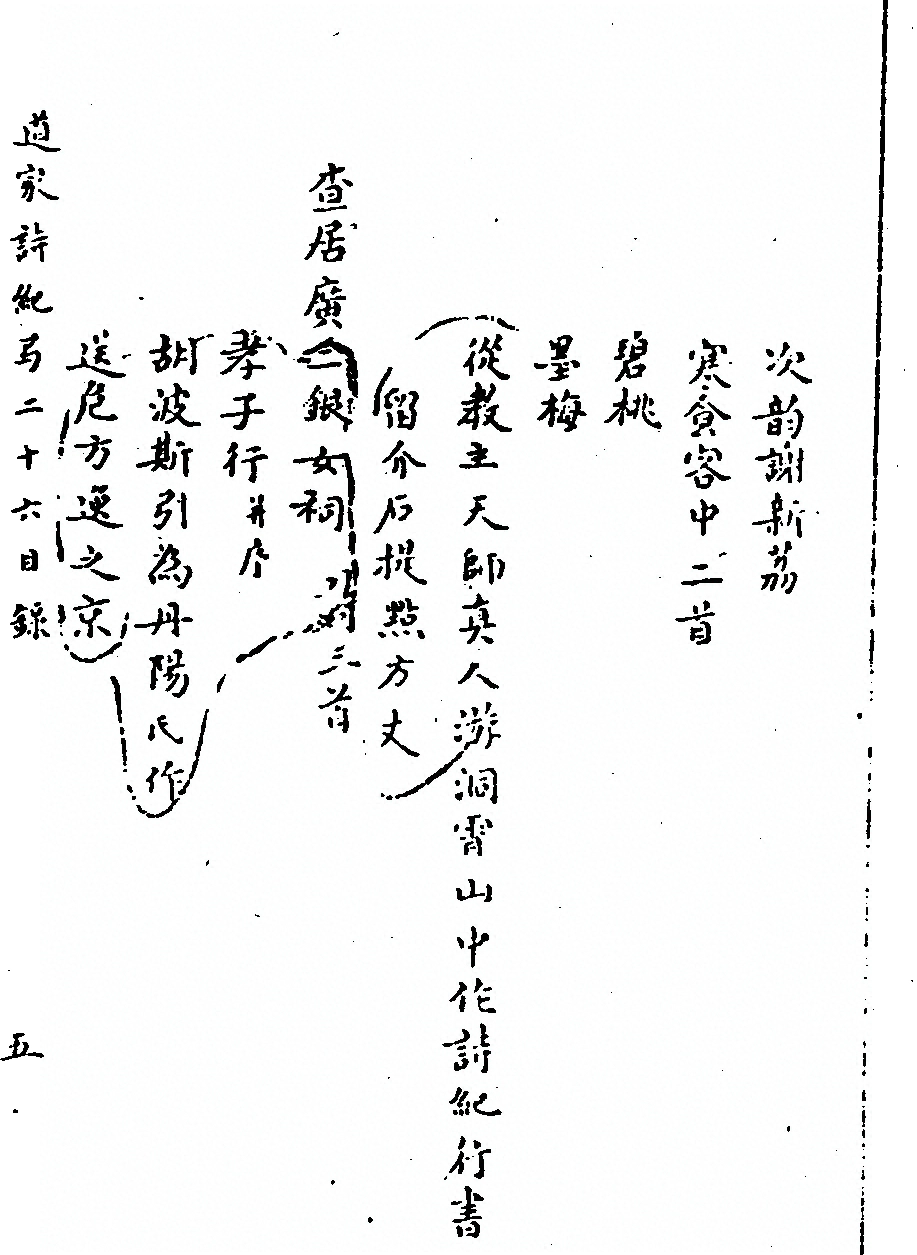 次韵謝新茘
寒食客中二首
碧桃
墨梅
從教主天師真人游洞霄山中作詩紀行書
留介石提點方丈
查居廣 二銀女祠 三首
孝子行并序
胡波斯引為丹陽氏作
送危方逸之京
道家詩紀 二十六目錄
五